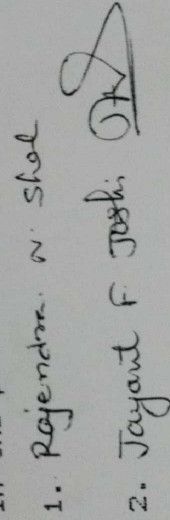 1. Rajendra. N. Shel
2. Jayant F Joshi